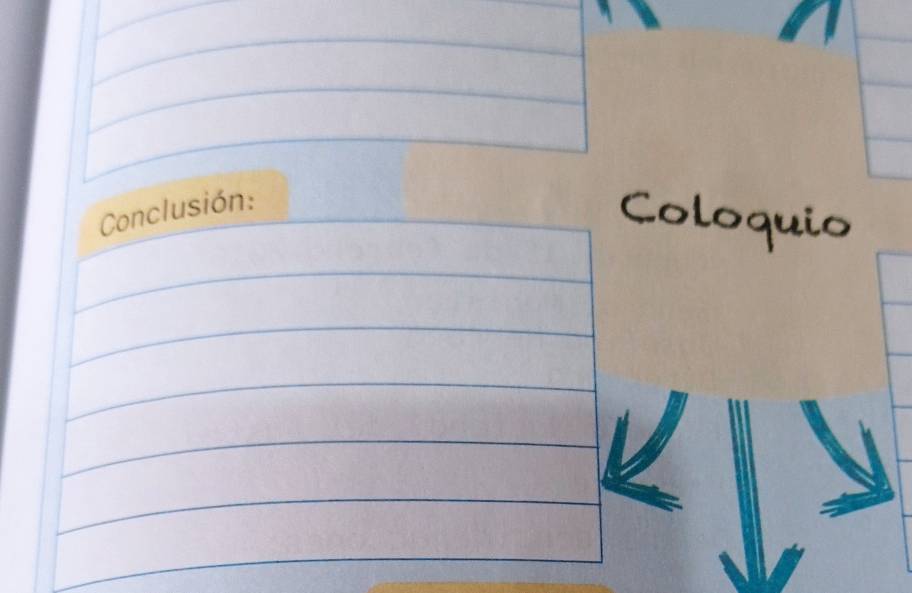 Conclusión:
Coloquio